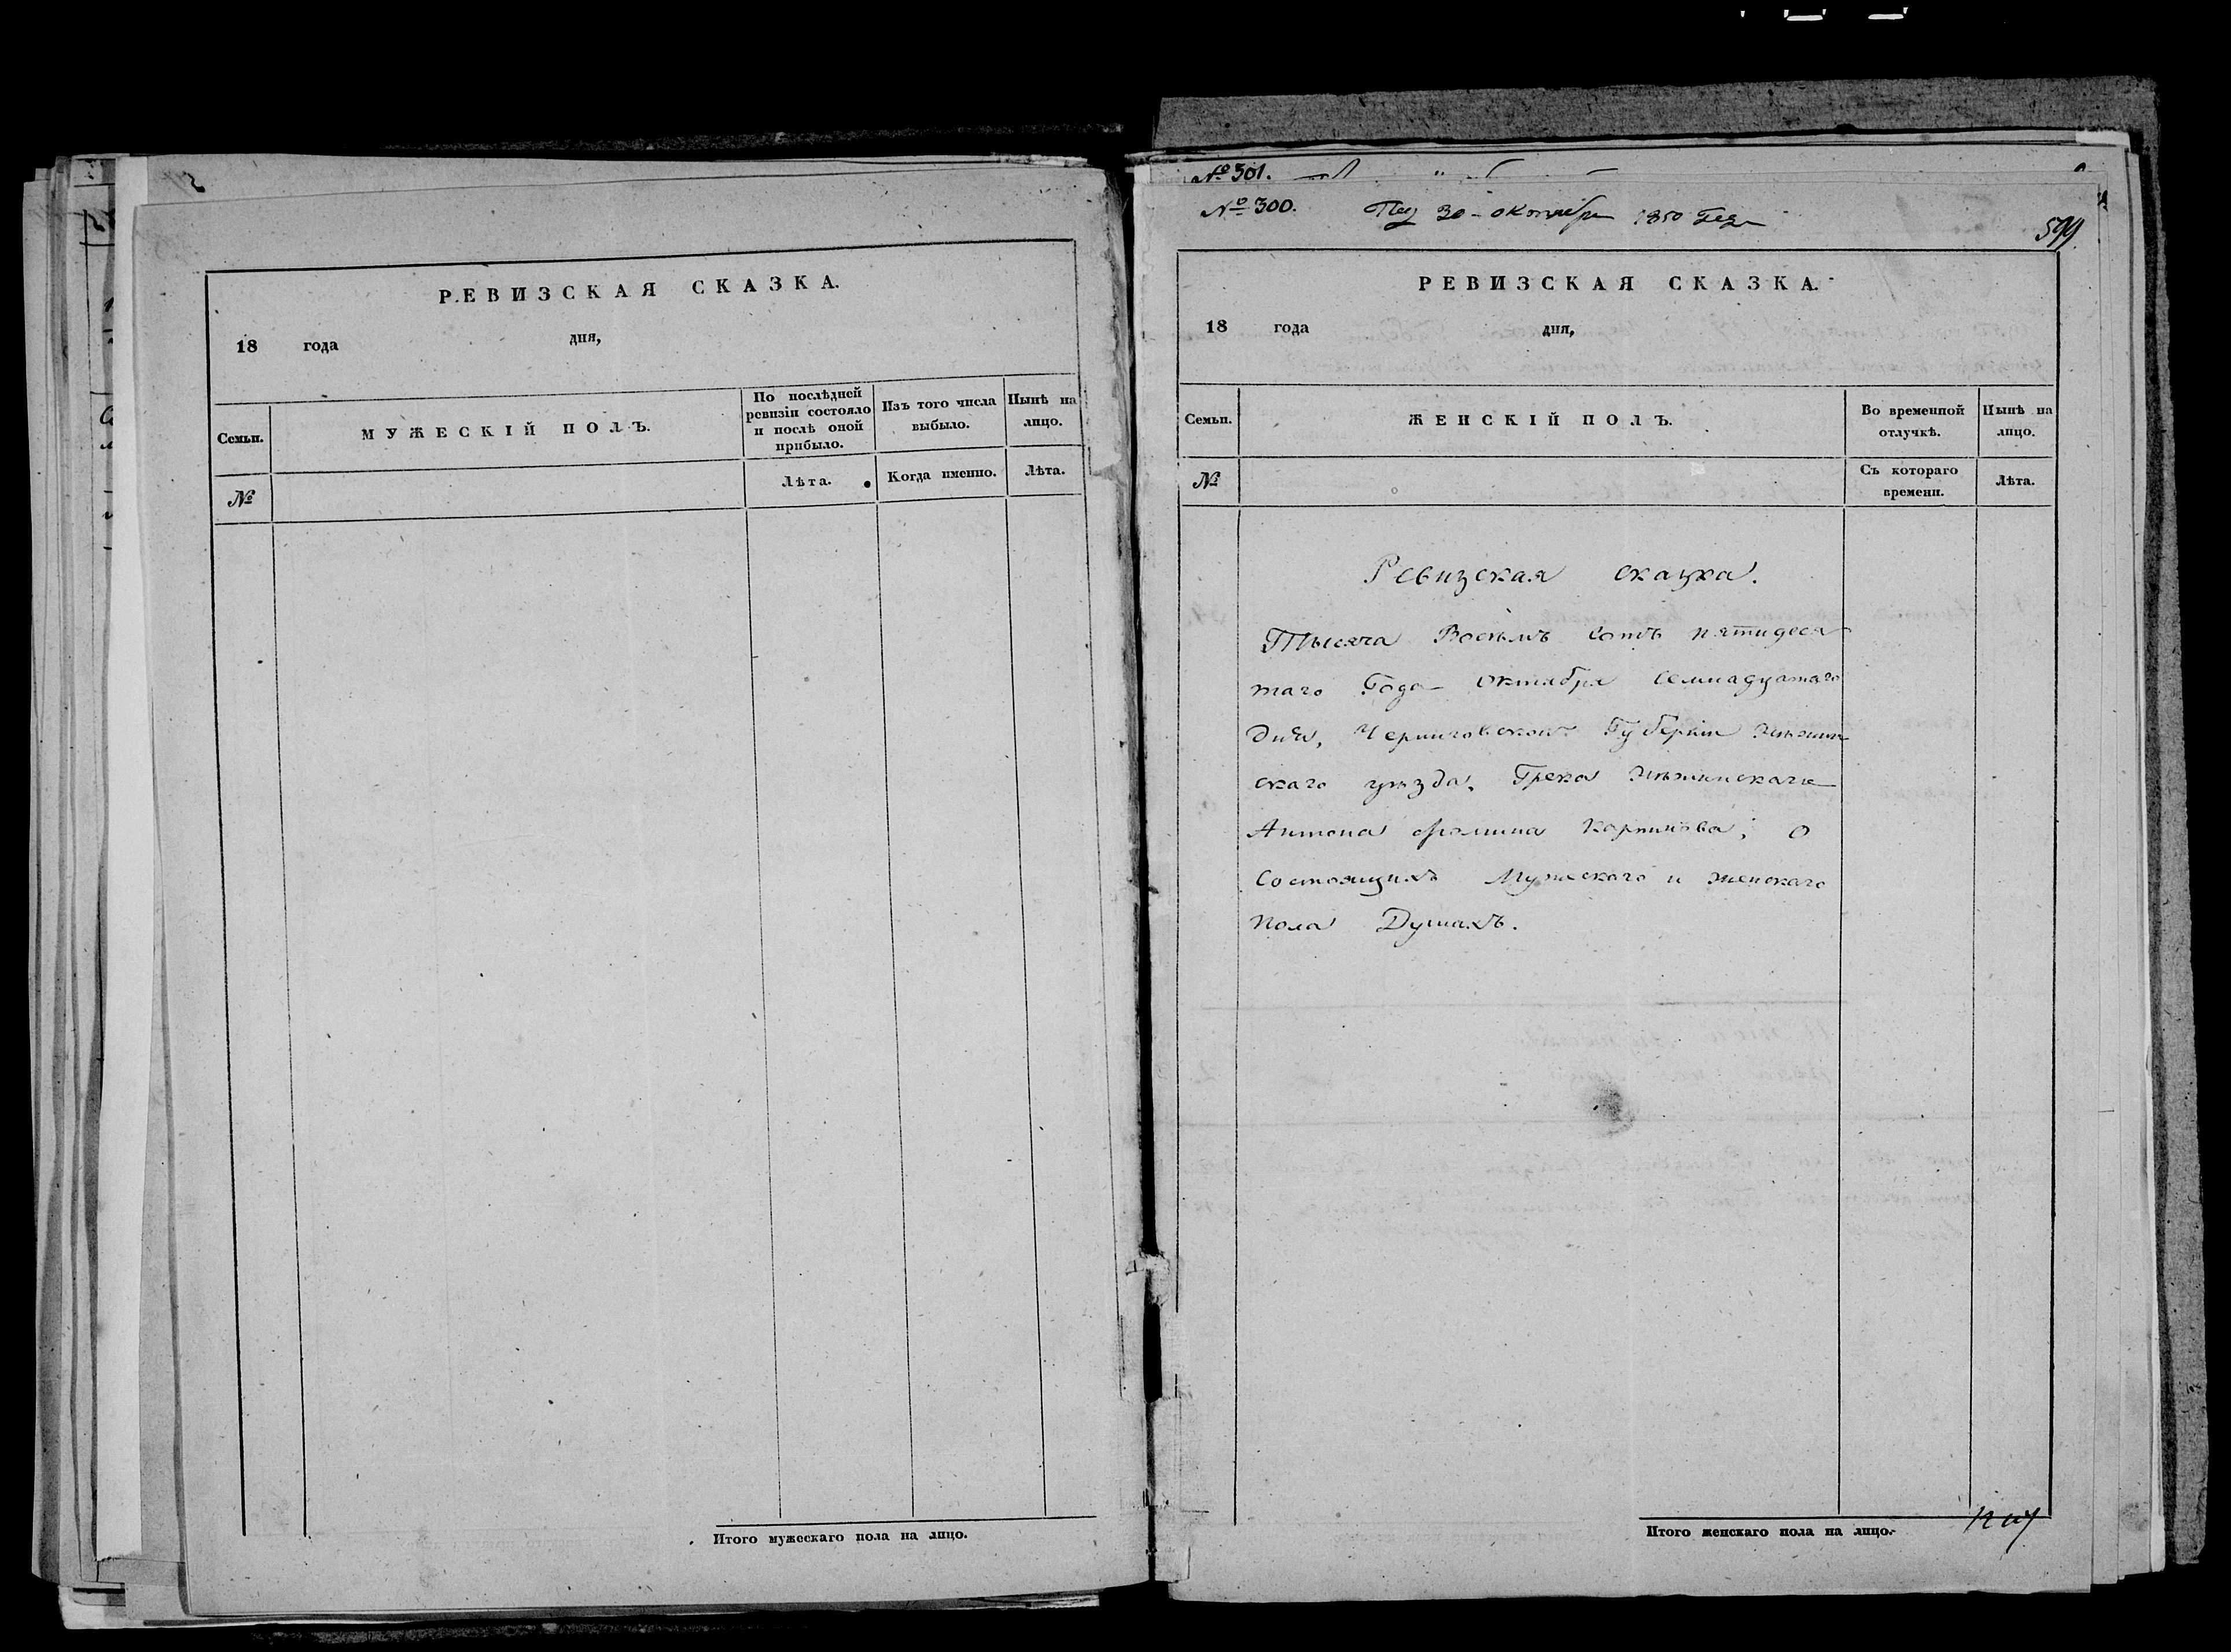 РЕВИЗСКАЯ СКАЗКА.
18 года дня,
Семьи.
МУЖЕСКІЙ ПОЛЪ.
По послѣдней
ревизіи состояло
и послѣ оной
прибыло.
Изъ того числа
выбыло.
Нынѣ на
лицо.
№
Лѣта.
Когда именно.
Лѣта.
Итого мужескаго пола на лицо.
№ 301.
№ 300. 30 октября 1850 года
599
РЕВИЗСКАЯ СКАЗКА.
18 года дня,
Семьи.
ЖЕНСКІЙ ПОЛЪ.
Во временной
отлучкѣ.
Нынѣ на
лицо.
№
Съ котораго
времени.
Лѣта.
Ревизская сказка.
Тысяча Восемъ Сотъ пятидеся
таго Года Октября Семнадцатаго
Дня, Черниговской Губерніи Нѣжин
скаго уѣзда, Грека Нѣжинскаго
Антона Фомина о
Состоящихъ Мужескаго и женскаго
пола Душахъ.
Итого женскаго пола на лицо.